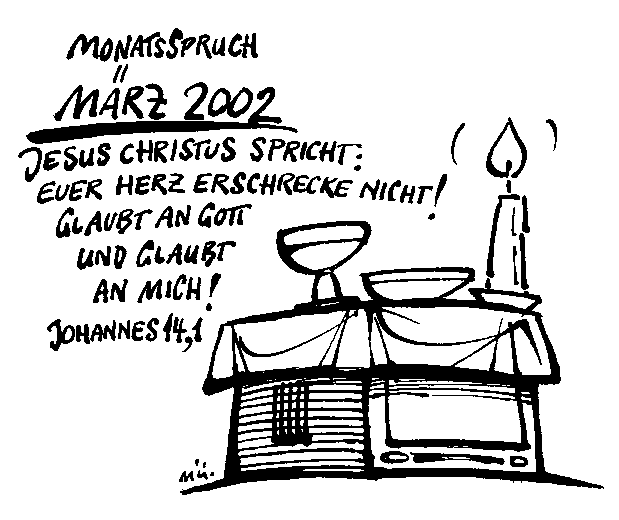 MONATSSPRUCH
MÄRZ 2002
JESUS CHRISTUS SPRICHT:
EUER HERZ ERSCHRECKE NICHT!
GLAUBT AN GOTT
UND GLAUBT
AN MICH!
JOHANNES 14,1